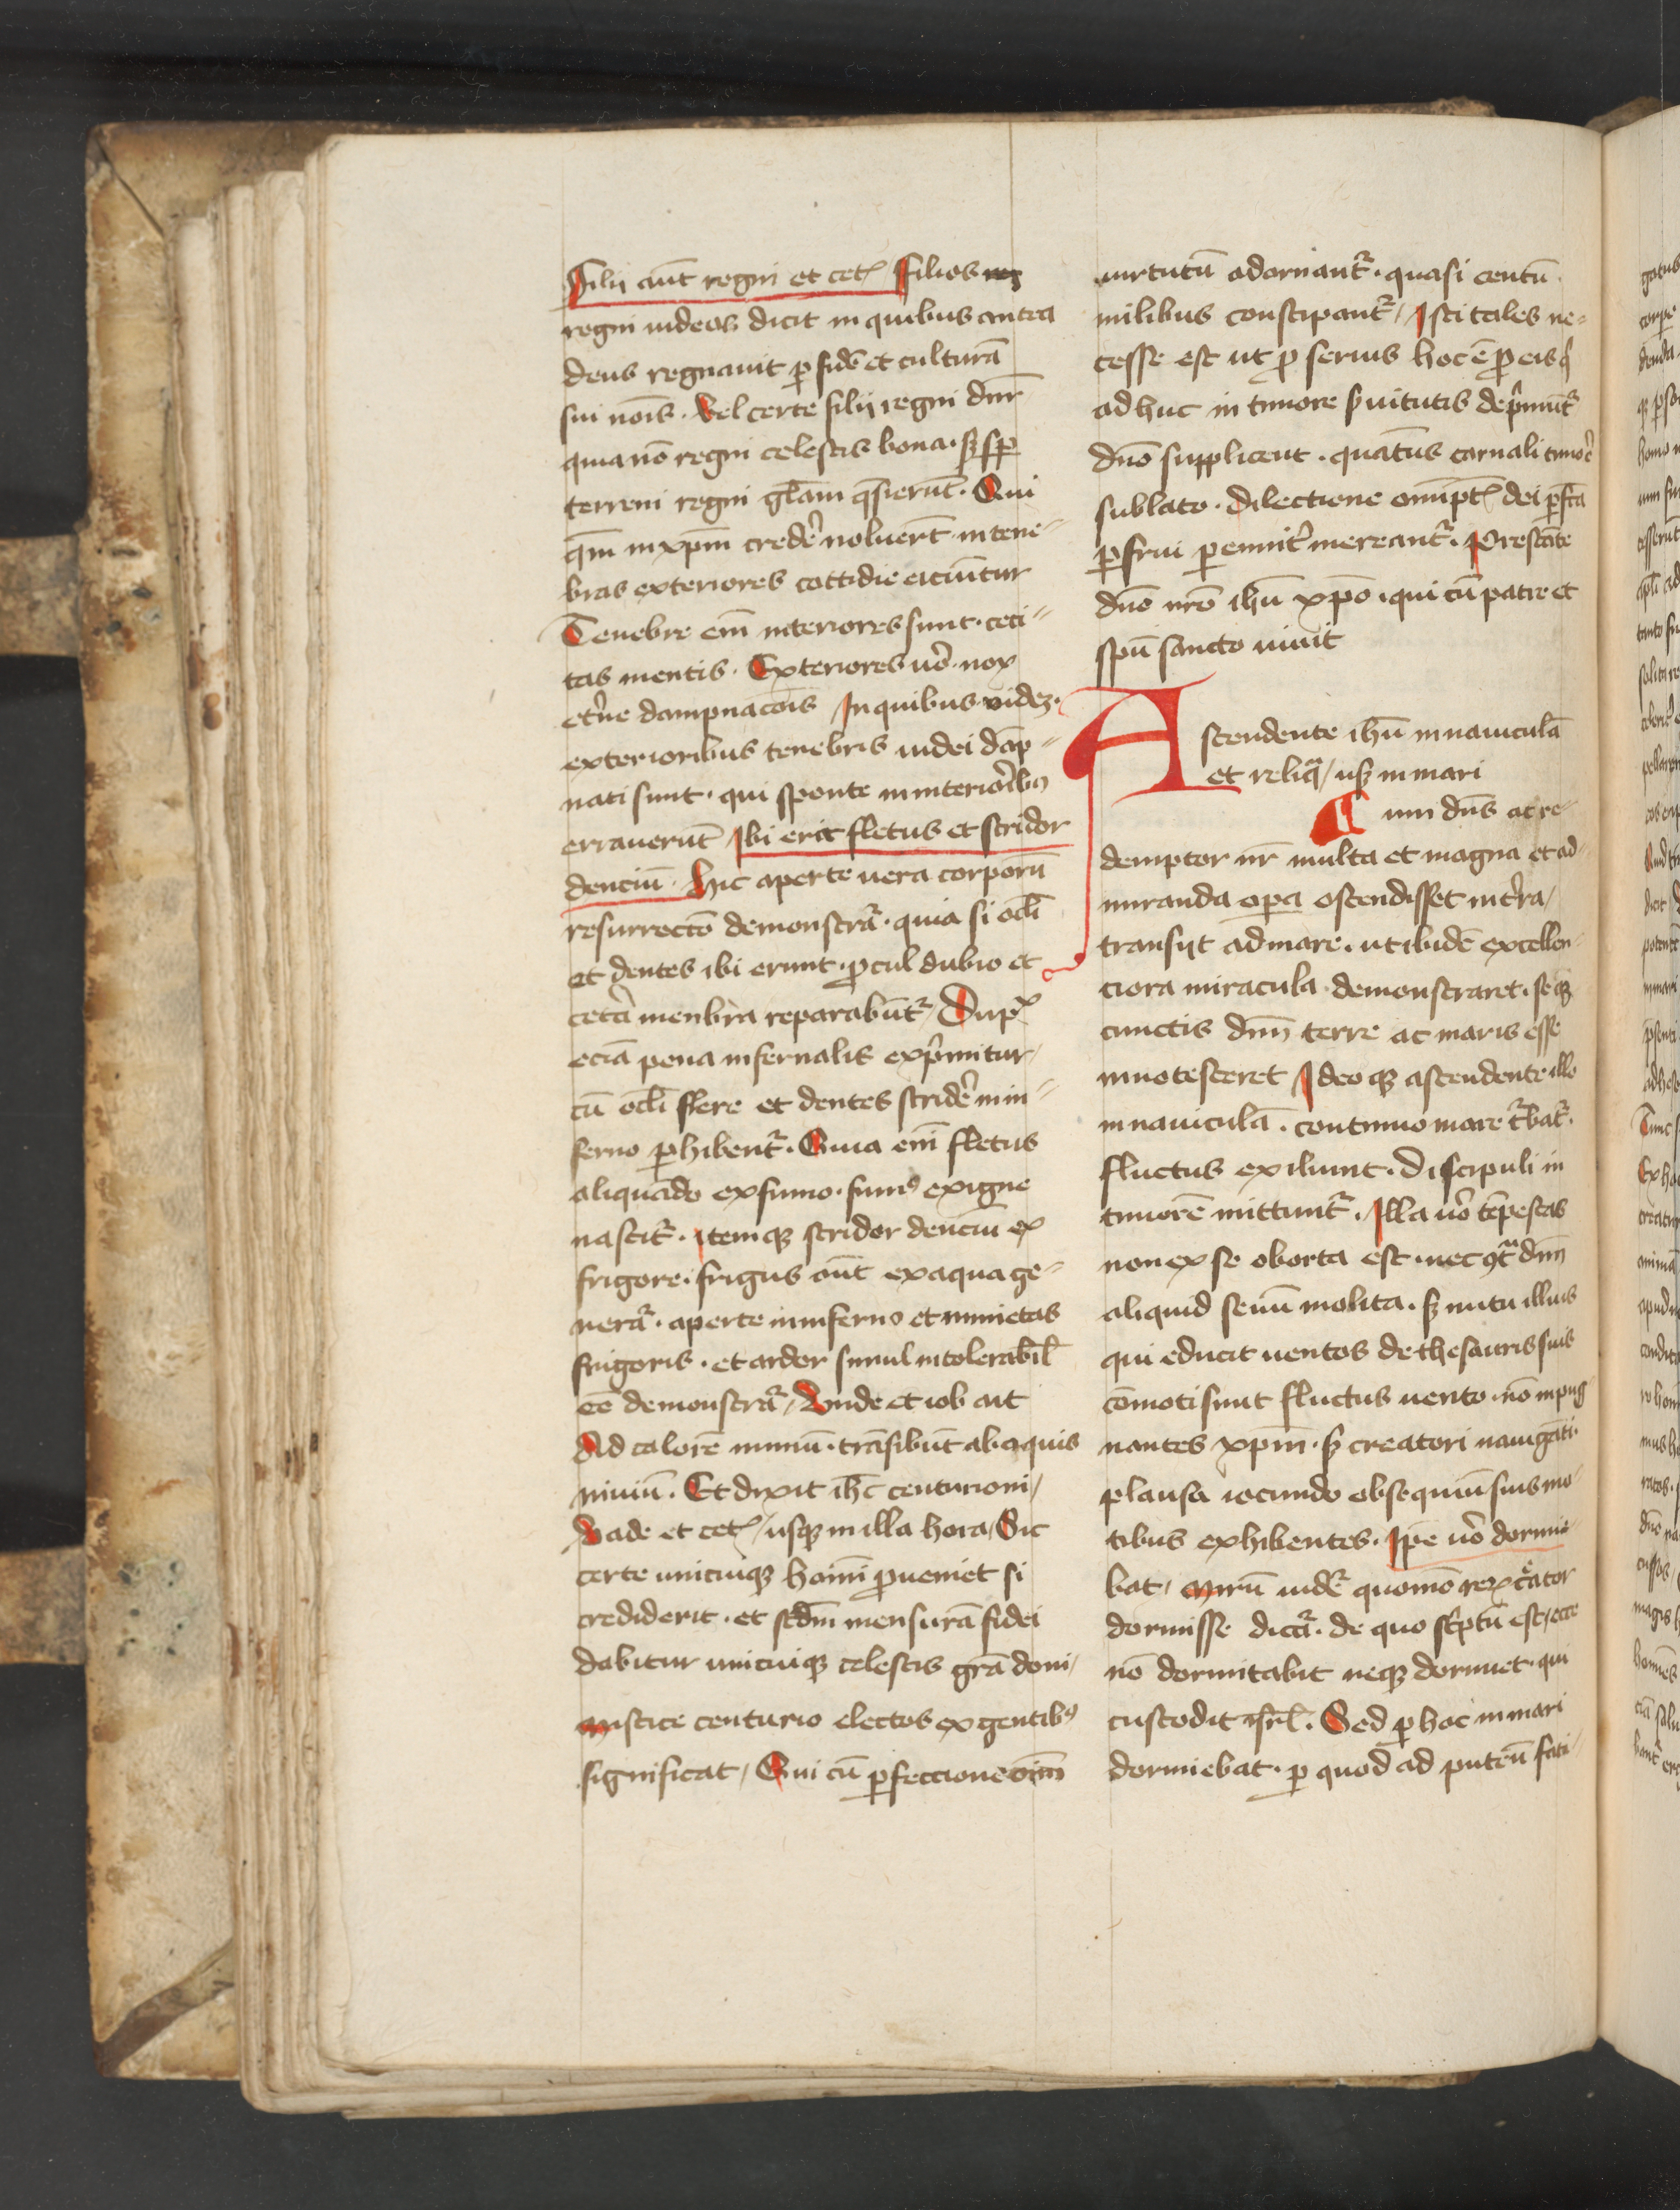 Filij aūt regni et cet͛ Filios
regni iudeos dicit in quibus antea
deus regnauit ꝑ fidē et culturā
sui nōis · Vel certe filij regni dn͛r
quia nō regni celestis bona · sꝫ sp̄
terreni regni gl̄am q̄sierūt · Qui
qm̄ in xp̄m crede͛ noluerūt in tene⸗
bras exteriores cottidie eiciūtur
Tenebre em̄ interiores sunt · ceci⸗
tas mentis · Exteriores uo͛ · nox
et͛ne dampnacōis In quibus uidꝫ ·
exterioribus tenebris iudei dāp⸗
nati sunt · qui sponte in interio͛ibꝰ
errauerūt Ibi erit fletus et stridor
denciū · Hic aperte uera corporū
resurrectō demonstra͛t · quia si oc̄li
et dentes ibi erunt · ꝓcul dubio et
cete͛a menbra reparabūt͛ / Dup͛x
eciā pena infernalis exp͛mitur /
cū oc̄li flere et dentes stride͛ in in⸗
ferno ꝑhibent͛ · Quia em̄ fletus
aliquādo ex fumo · fumꝰ ex igne
nascit͛ · itemqꝫ stridor denciū ex
frigore · frigus aūt ex aqua ge⸗
nera͛t · aperte in inferno et nimietas
frigoris · et ardor simul intolerabil̄
eē demonstra͛t / Vnde et iob ait
Ad calorē nimiū · trāsibūt ab aquis
niuiū · Et dixit ih̄c centurioni /
Vade et cet͛ / usqꝫ in illa hora / Sic
certe unicuiqꝫ homī ꝓueniet si
crediderit · et scd̄m mensurā fidei
dabitur unicuiqꝫ celestis gr̄a doni /
Mistice centurio electos ex gentibꝰ
significat / Qui cū ꝑfeccione oīm
uirtutū adornant͛ · quasi centū
milibus constipant͛ / Isti tales ne⸗
cesse est ut ꝓ seruis hoc ē ꝓ eis q͛
ad huc in timore s͛uitutis dep͛mūt͛
dn̄o supplicent · quaten̄s carnali timor͛
sublato · dilectione om̄ipt͛ dei ꝑfcā
ꝑfrui ꝑenit͛ mereant͛ · Prestāte
dn̄o nr̄o ihū xp̄o · qui cū patre et
spū sancto uiuit
Ascendente ihū in nauiculā
et reliq̄ / usqꝫ in mari
Cum dn̄s ac re⸗
demptor nr̄ multa et magna et ad⸗
miranda opa ostendisset in t͛ra /
transijt ad mare · ut ibidē excellen⸗
ciora miracula demonstraret · seqꝫ
cunctis dn̄m terre ac maris esse
innotesceret Ideoqꝫ ascendente illo
in nauiculā · continuo mare t͛bat͛ ·
fluctus exiliunt · Discipuli in
timorē mittunt͛ · Illa uo͛ tēpestas
non ex se oborta est · nec ꝯt͛ dn̄m
aliquid seuū molita · sꝫ nutu illius
qui educit uentos de thesauris suis
cōmoti sunt fluctus uento · nō inpug⸗
nantes xp̄m · sꝫ creatori nauigāti ·
plausa iocundo obsequiū suis mo⸗
tibus exhibentes · Ip̄e uo͛ dormie⸗
bat / Mirū uide͛ quomō rex c͛ator
dormisse dict͛ · de quo sc͛ptū est / ecce
nō dormitabit neqꝫ dormiet · qui
custodit isrl̄ · Sed ꝑ hoc in mari
dormiebat · ꝑ quod ad puteū fati⸗